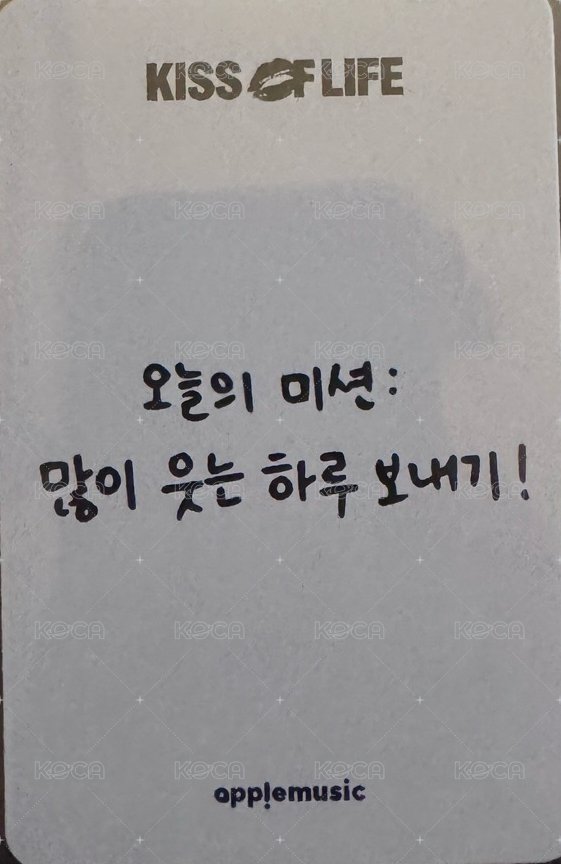 KISS OF LIFE
오늘의 미션:
많이 웃는 하루 보내기!
app!emusic
KOCA KOCA KOCA KOCA
KOCA KOCA KOCA KOCA
KOCA KOCA KOCA KOCA
KOCA KOCA KOCA KOCA
KOCA KOCA KOCA KOCA
KOCA KOCA KOCA KOCA